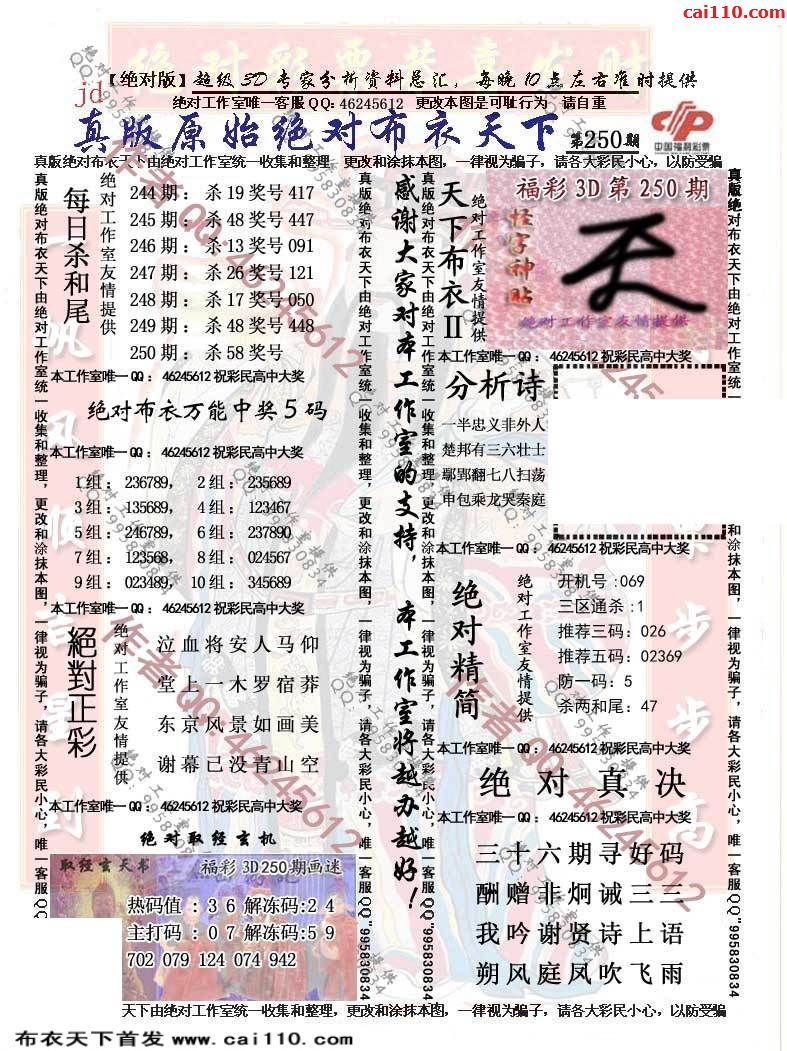 cai110.com
【绝对版】超级3D专家分析资料总汇，每晚10点左右准时提供
jd
绝对工作室唯一客服QQ:46245612 更改本图是可耻行为 请自重
真版原始绝对布衣天下 第250期
中国福利彩票
真版绝对布衣天下由绝对工作室统一收集和整理，更改和涂抹本图，一律视为骗子，请各大彩民小心，以防受骗
每日杀和尾
绝对工作室友情提供
244期：杀19奖号417
245期：杀48奖号447
246期：杀13奖号091
247期：杀26奖号121
248期：杀17奖号050
249期：杀48奖号448
250期：杀58奖号
本工作室唯一QQ：46245612祝彩民高中大奖
绝对布衣万能中奖5码
本工作室唯一QQ：46245612祝彩民高中大奖
1组：236789，2组：235689
3组：135689，4组：123467
5组：246789，6组：237890
7组：123568，8组：024567
9组：023489，10组：345689
本工作室唯一QQ：46245612祝彩民高中大奖
絕對正彩
绝对工作室友情提供
泣血将安人马仰
堂上一木罗宿莽
东京风景如画美
谢幕已没青山空
本工作室唯一QQ：46245612祝彩民高中大奖
绝对取经玄机
取经玄天书 福彩3D250期画迷
热码值：36解冻码:24
主打码：07解冻码:59
702 079 124 074 942
感谢大家对本工作室的支持，本工作室将越办越好！
天下布衣II
绝对工作室友情提供
福彩3D第250期
怪字神贴
绝对工作室友情提供
本工作室唯一QQ：46245612祝彩民高中大奖
分析诗
一半忠义非外人
楚邦有三六壮士
鄢郢翻七八扫荡
申包乘龙哭秦庭
本工作室唯一QQ：46245612祝彩民高中大奖
绝对精简
绝对工作室友情提供
开机号:069
三区通杀:1
推荐三码：026
推荐五码：02369
防一码：5
杀两和尾：47
本工作室唯一QQ：46245612祝彩民高中大奖
绝对真决
本工作室唯一QQ：46245612祝彩民高中大奖
三十六期寻好码
酬赠非炯诫三三
我吟谢贤诗上语
朔风庭凤吹飞雨
真版绝对布衣天下由绝对工作室统一收集和整理，更改和涂抹本图，一律视为骗子，请各大彩民小心，唯一客服QQ"995830834
天下由绝对工作室统一收集和整理，更改和涂抹本图，一律视为骗子，请各大彩民小心，以防受骗
布衣天下首发 www.cai110.com